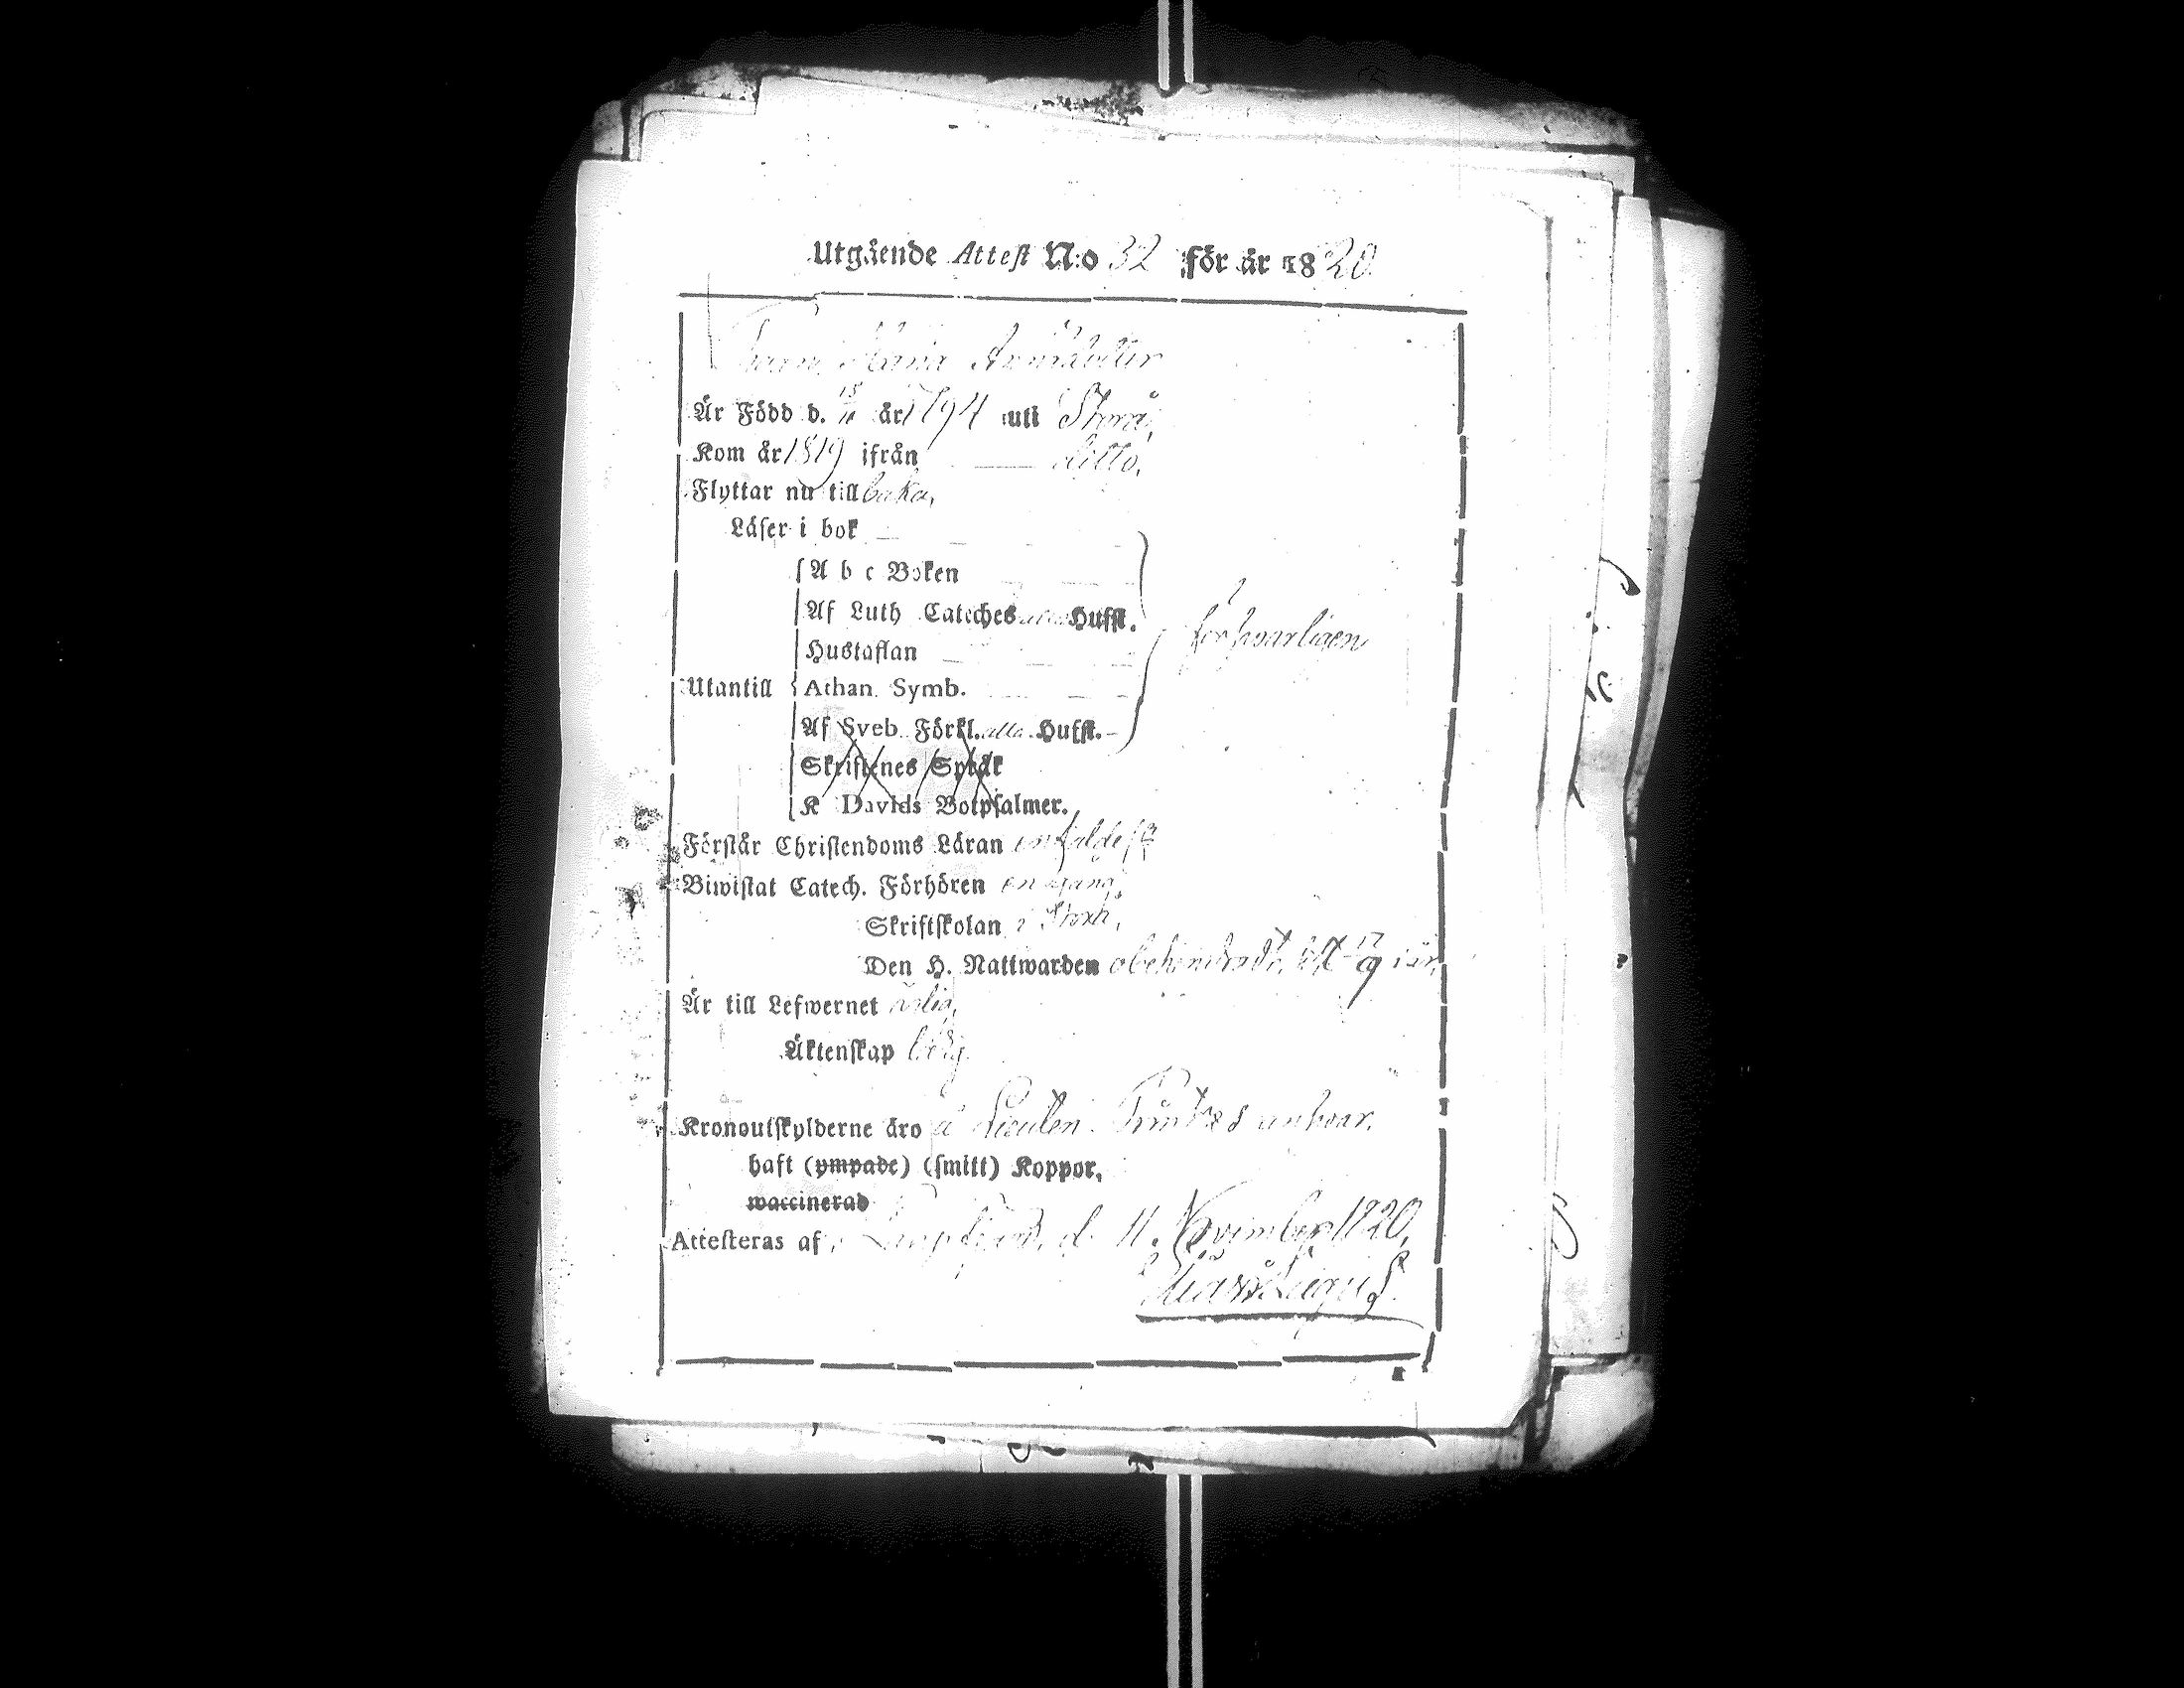 Utgående Attest N:o 32 för år 1820.
Maria
Är Född d. 15/11 år 1794 uti Storå,
Kom år 1819 ifrån ditto,
Flyttar nu till baka,
Läser i bok
A b c Boken
Af Luth Catiches alla Hufst.
Hustaflan
försvarligen
Utantill Athan. Symb.
Af Sveb. Förkl. alla Hufst.
Skriftenes Språk
K Davids Botpsalmer.
Förstår Christendoms Läran
Biwistat Catech. Förhören en gång,
Skriftskolan i
Den H. Nattwarden obehindradt, 17/9 i år,
Är till Lefwernet ärlig,
Äktenskap ledig
Kronoutskylderne äro å Lieuten. ansvar.
haft (ympade) (smitt) Koppor,
waccinerad
Attesteras af, d. 11. November 1820,